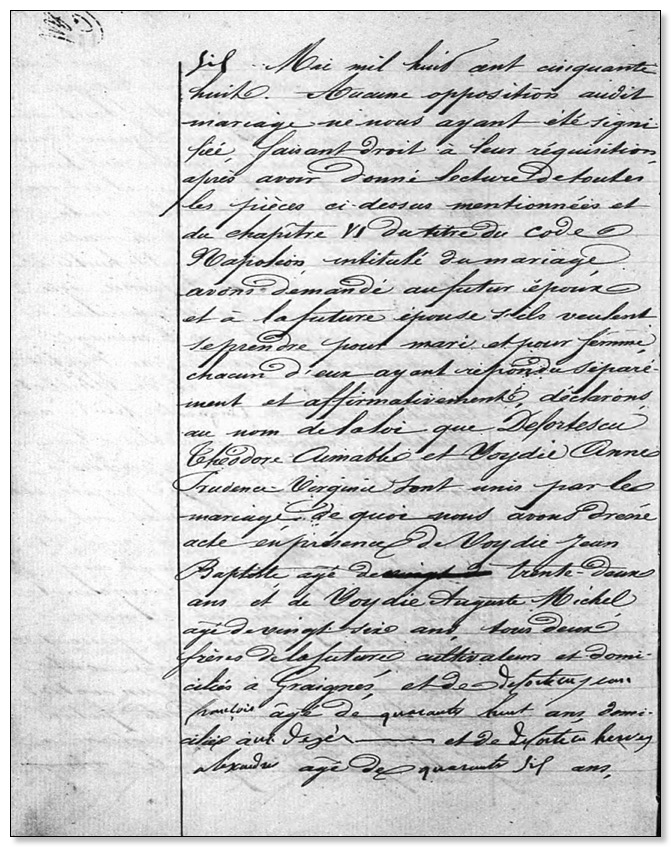 six Mai mil huit cent cinquante
huit. Aucune opposition audit
mariage ne nous ayant été signi
fiée, faisant droit à leur réquisition,
après avoir donné lecture de toutes
les pièces ci-dessus mentionnées et
du chapitre VI du titre du code
Napoléon, intitulé du mariage
avons demandé au futur époux
et à la future épouse s'ils veulent
se prendre pour mari et pour femme
chacun d'eux ayant répondu séparé-
ment et affirmativement, déclarons
au nom de la loi que Defortescu
Théodore Aimable et Voydie Anne
Prudence Virginie sont unis par le
mariage. de quoi nous avons dressé
acte en présence de Voydie Jean
Baptiste agé de trente-deux
ans et de Voydie Auguste Michel
agé de vingt six ans, tous deux
frères de la future cultivateurs et domi-
ciliés à Graignes, et de
françois âgé de quarante huit ans, domi-
cilié au Dezér et de
alexandre agé de quarante six ans,